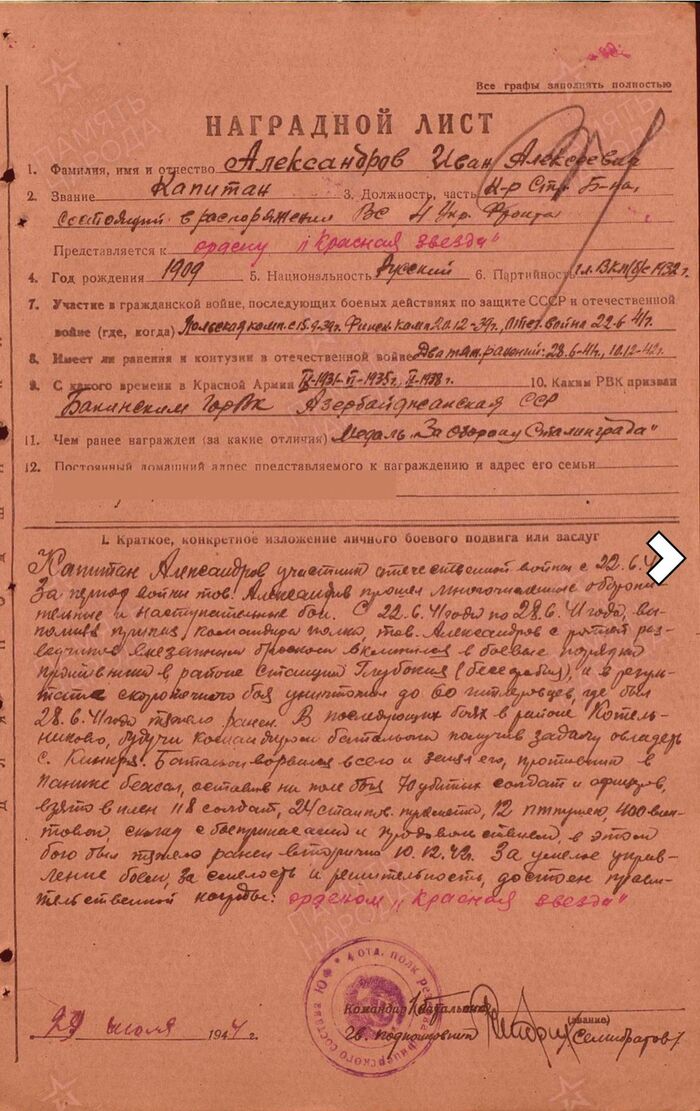 Все графы заполнять полностью
НАГРАДНОЙ ЛИСТ
1. Фамилия, имя и отчество Александров Иван Алексеевич
2. Звание Капитан 3. Должность, часть К-р Стр. Б-на,
состоящий в распоряжении ВС 4 Укр. Фронта
Представляется к ордену „Красная звезда"
4. Год рождения 1909 5. Национальность Русский 6. Партийность чл. ВКП(б) с 1932 г.
7. Участие в гражданской войне, последующих боевых действиях по защите СССР и отечественной
войне (где, когда) Польская комп. с 15.9.39г. Финск. комп 20.12-39г., Отеч. война 22.6.41г.
8. Имеет ли ранения и контузии в отечественной войне Два тяж. ранения: 28.6-41г, 10.12-42г.
9. С какого времени в Красной Армии 10. Каким РВК призван
Бакинским ГорВК Азербайджанская ССР
11. Чем ранее награжден (за какие отличия) Медаль „За оборону Сталинграда"
12. Постоянный домашний адрес представляемого к награждению и адрес его семьи
I. Краткое, конкретное изложение личного боевого подвига или заслуг
Капитан Александров участник отечественной войны с 22.6.41
За период войны тов. Александров прошел многочисленные оборони
тельные и наступательные бои. С 22.6.41 года по 28.6.41 года, вы-
полняя приказ командира полка, тов. Александров с ротой раз-
ведчиков внезапным броском вклинился в боевые порядки
противника в районе станции Глубокия (бессарабия), и в резуль-
тате скоротечного боя уничтожил до 60 гитлеровцев, где был
28.6.41 года тяжело ранен. В последующих боях в районе Котель-
никово, будучи командиром батальона получив задачу овладеть
с. Батальон ворвался в село и занял его, противник в
панике бежал, оставив на поле боя 70 убитых солдат и офицеров,
взято в плен 118 солдат, 24 станков. пулемета, 12 птружей, 400 вин-
товок, склад с боеприпасами и продовольствием, в этом
бою был тяжело ранен вторично 10.12.42г. За умелое управ-
ление боем, за смелость и решительность, достоен прави-
тельственной награды: орденом „Красная звезда"
4 отд. полк офицерского состава
Командир батальона
29 июля 1944 г. Гв. подполковник (звание)
ПАМЯТЬ НАРОДА